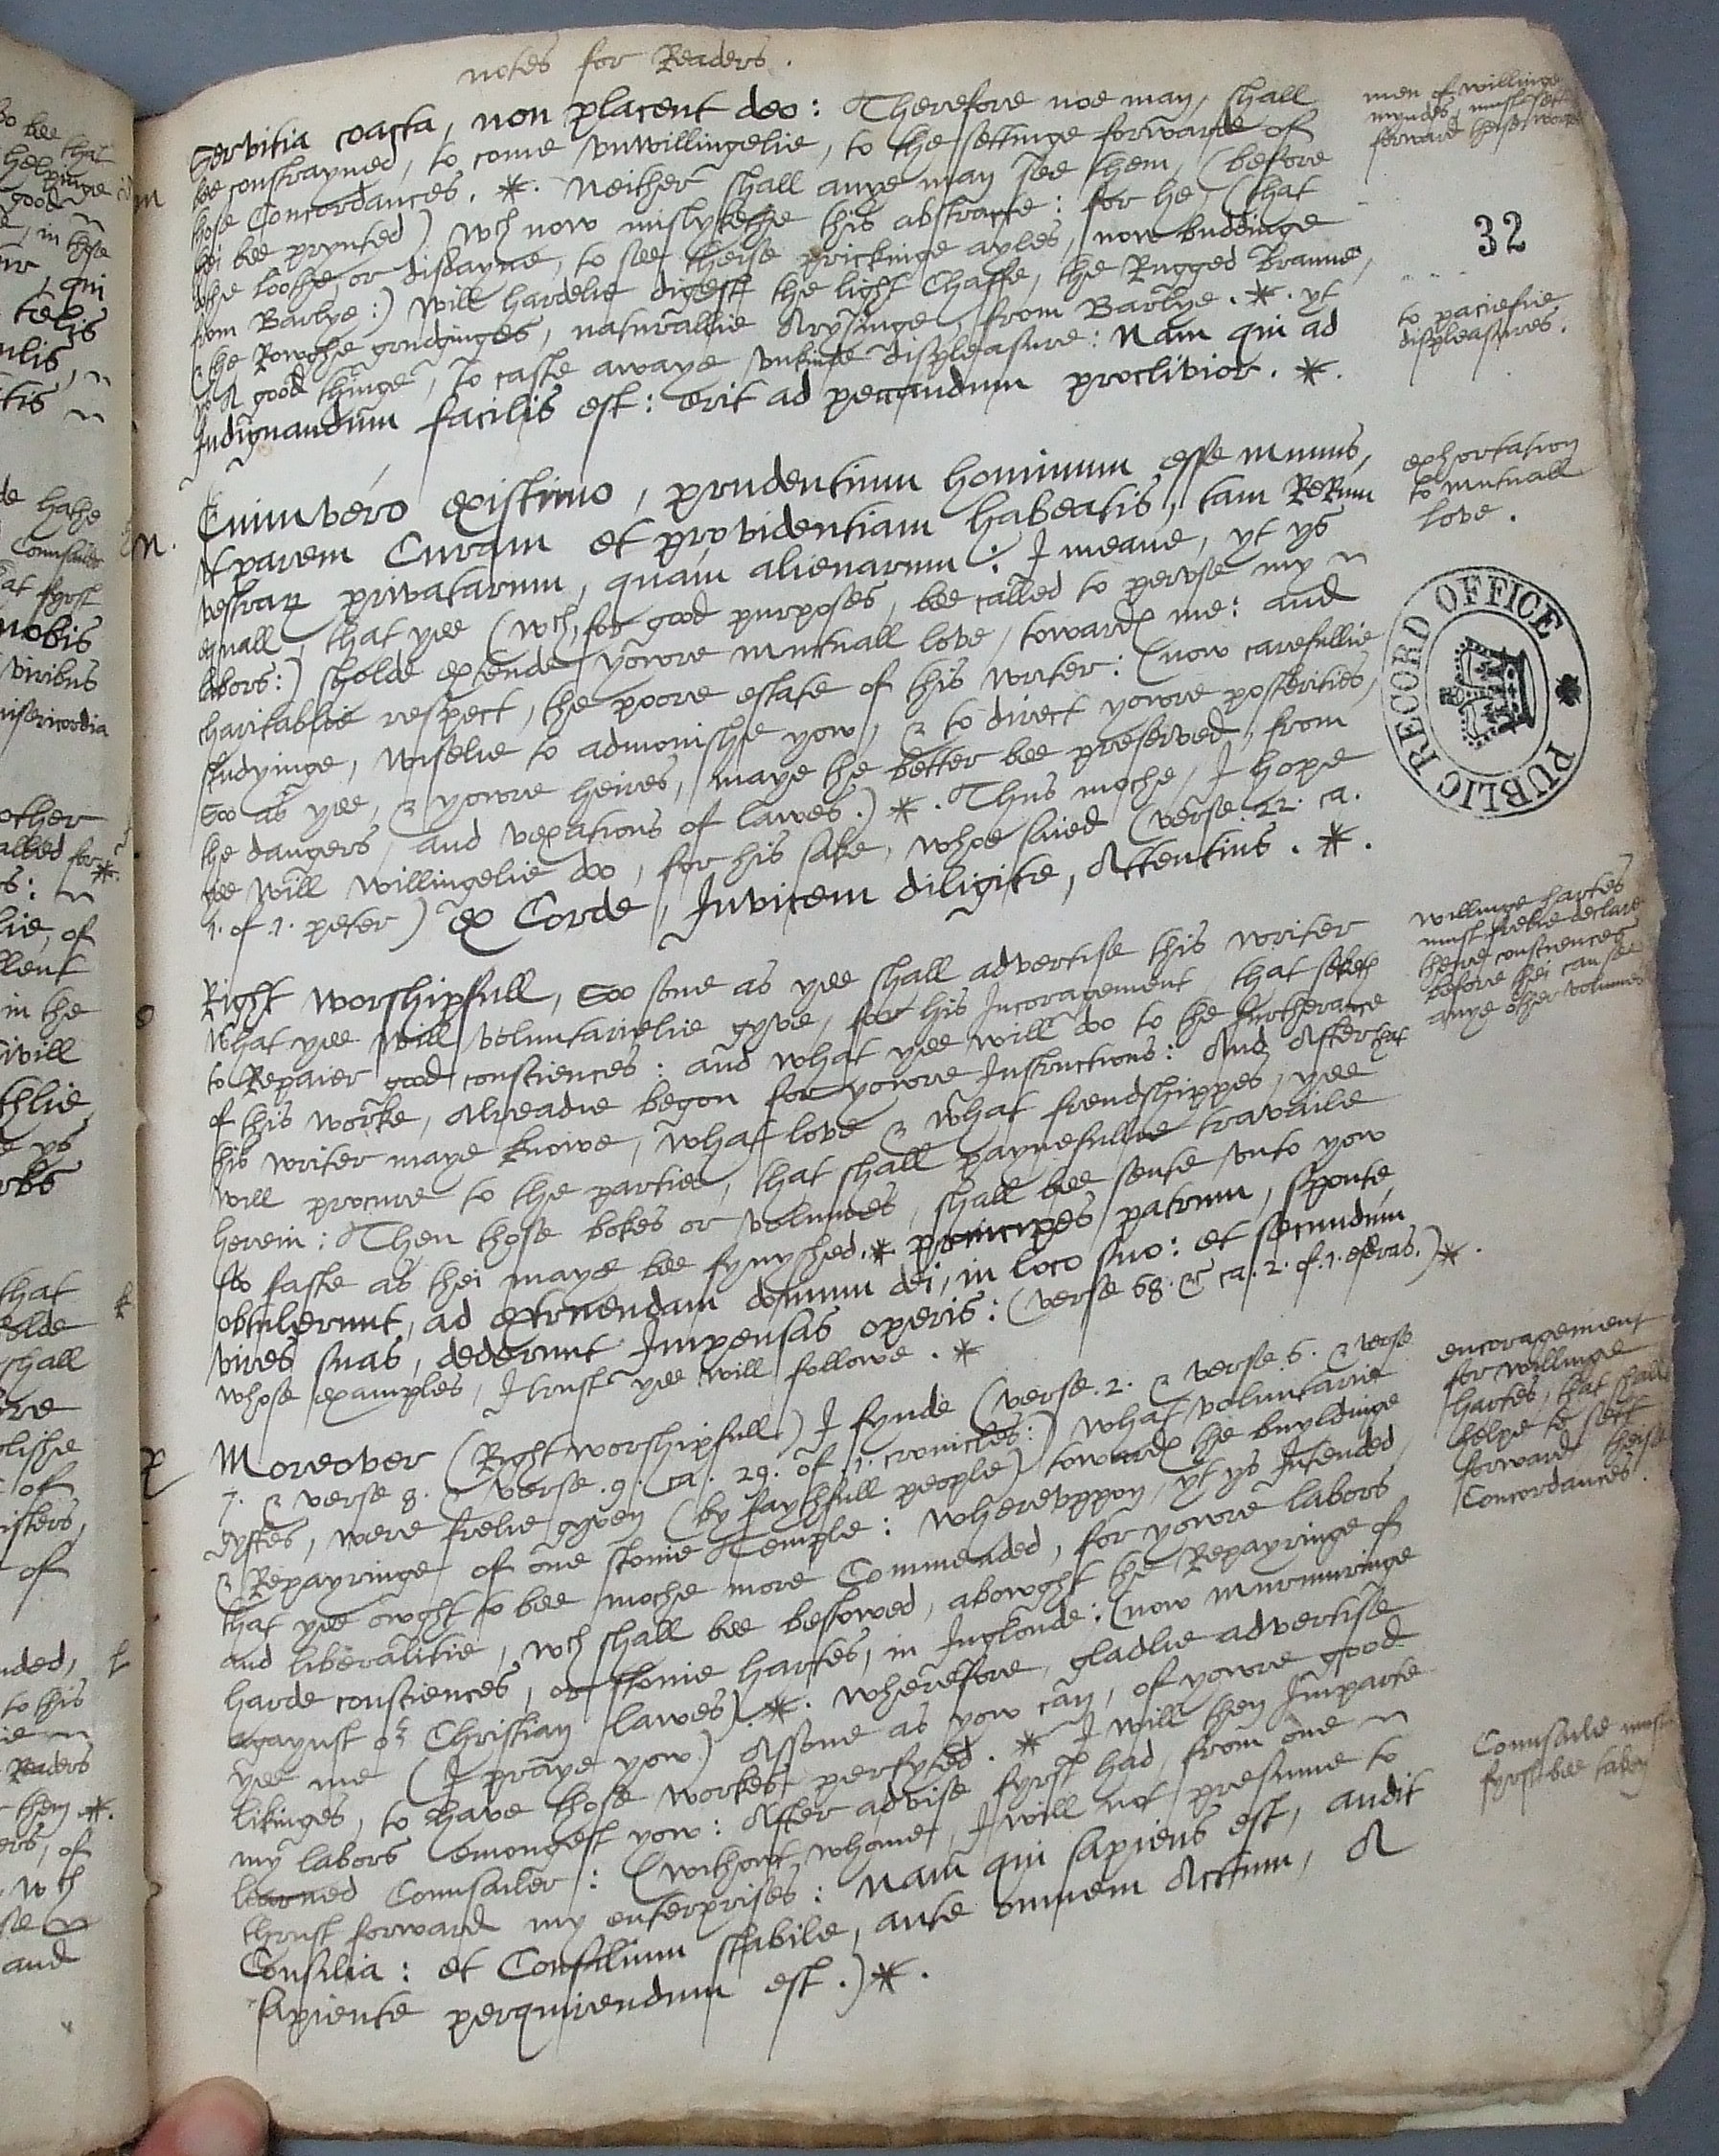 notes for Readers.
Servitia coacta, non placent deo: Therefore noe man, shall
bee constrayned, to come vnwillingelie, to the settinge forwarde of
those Concordances. *. Neither shall anye man see them, (before
thei bee prynted) wch now mislykethe this abstracte: for he, (that
dothe loothe, or disdayne, to see theise prickinge ayles, now buddinge
from Barlye:) will hardelie digest the light Chaffe, the Rugged Branne,
& the Rowghe grudginges, naturallie Arysinge, from Barlye. *. yt
ys A good thinge, to caste awaye vnkinde displeasure: Nam qui ad
Indignandum facilis est: erit ad peccandum proclivior. *.
men of willinge
myndes, must sett
forward theise workes
32
to paciefie
displeasures.
n.
Enimvero existimo, prudentium hominum esse munus,
vt parem Curam et providentiam habeatis, tam ReRum
vestrarum privatarum, quam alienarum: I meane, yt ys
equall, that yee (wch, for good purposes, bee called to pervse my
labors:) sholde extende yowre mutuall love, towardes me: and
charitablie respect, the poore estate of this writer: (now carefullie
studyinge, wiselie to admonishe yow, & to direct yowre posterities,
Soo as yee, & yowre heires, maye the better bee preserved, from
the dangers, and vexations of lawes.) *. Thus moche, I hope
yee will willingelie doo, for his sake, whoe saied (verse. 22. ca.
1. of .1. peter) ex Corde, Invicem diligite, Attentius. *.
exhortation
to mutuall
love.
PUBLIC RECORD OFFICE
o
Right worshipfull, Soo sone as yee shall advertise this writer
what yee will voluntarielie gyve, for his Incoragement, that seketh
to Repaier good consciences: and what yee will doo to the furtherance
of this worke, Alreadie begon for yowre Instructions: And After that
this writer maye knowe, what love & what frendshippes, yee
will procure to the parties, that shall paynefullie travaile
herein: Then those bokes or volumes, shall bee sente vnto yow
soo faste as thei maye bee fynyshed. * principes patrum, sponte
obtulerunt, ad extruendam domum dei, in loco suo: et secundum
vires suas, dederunt Impensas operis: (verse 68. & ca. 2. of .1. esdras.) *.
whose examples, I trust yee will followe. *
willinge hartes
must frelie declare
theire consciences
before thei can see
anye other volumes
p
Moreover (Right worshipfull) I fynde (verse. 2. & verse. 6. & verse
7. & verse 8. & verse .9. ca. 29. of .1. cronicles:) what voluntarie
gyftes, were frelie gyven (by faythfull people) towardes the buyldinge
& Repayringe of one stonie Temple: wherevppon, yt ys Intended,
that yee owght to bee moche more Commended, for yowre labors
and liberalitie, wch shall bee bestowed, abowght the Repayringe of
harde consciences, or stonie hartes, in Inglonde: (now murmuringe
agaynst or Christian lawes). *. wherefore, gladlie advertise
yee me (I praye yow) Assone as yow can, of yowre good
likinges, to have those workes perfyted. * I will then Imparte
my labors emongest yow: After advise fyrst had, from one
learned Counsailer: (without whome, I will not presume to
thrust forward my enterprises: Nam qui sapiens est, audit
Consilia: et Consilium stabile, ante omnem Actum, A
sapiente perquirendum est.) *.
encoragement
for willinge
hartes, that shall
helpe to sett
forward theise
Concordances.
Counsaile must
fyrst bee taken